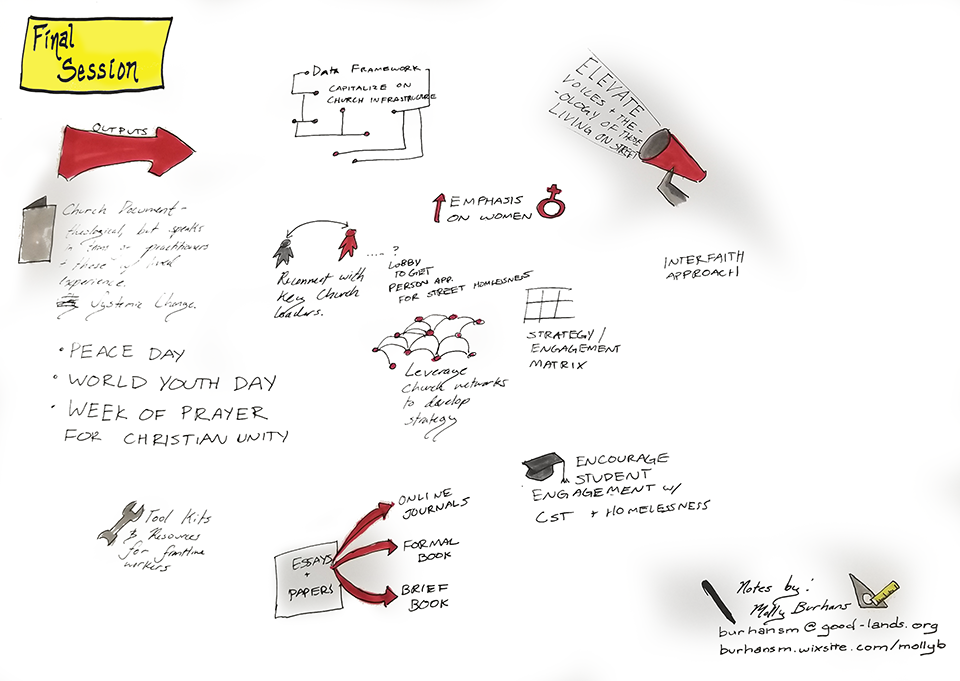 Final
Session
OUTPUTS
Church Document -
theological, but speaks
in terms of practitioners
+ those w/ lived
experience.
Systemic Change.
• PEACE DAY
• WORLD YOUTH DAY
• WEEK OF PRAYER
FOR CHRISTIAN UNITY
Tool Kits
& Resources
for frontline
workers
DATA FRAMEWORK
CAPITALIZE ON
CHURCH INFRASTRUCTURE
ELEVATE
VOICES + THE-
-OLOGY OF THOSE
LIVING ON STREET
EMPHASIS
ON WOMEN
Reconnect with
Key Church
leaders.
..... ?
LOBBY
TO GET
PERSON APP.
FOR STREET HOMLESNESS
INTERFAITH
APPROACH
STRATEGY/
ENGAGEMENT
MATRIX
Leverage
church networks
to develop
strategy
ENCOURAGE
STUDENT
ENGAGEMENT w/
CST + HOMELESSNESS
ESSAYS
+
PAPERS
ONLINE
JOURNALS
FORMAL
BOOK
BRIEF
BOOK
Notes by:
Molly Burhans
burhansm@good-lands.org
burhansm.wixsite.com/mollyb